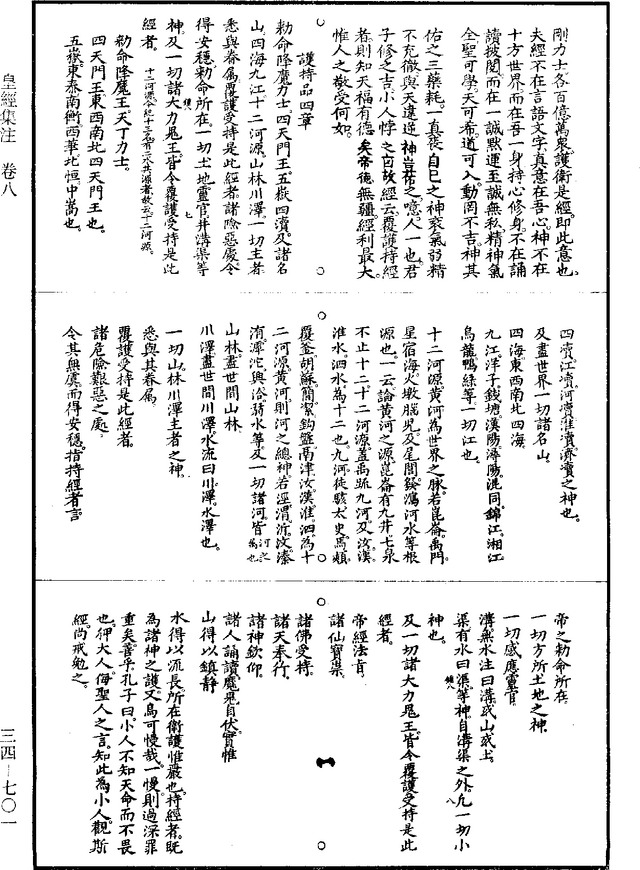 剛力士各百億萬衆護衛是經即此意也
夫經不在言語文字真意在吾心神不在
十方世界而在吾一身持心修身不在誦
讀披閱而在一誠默運至誠無私精神氣
全聖可學天可希道可入動罔不吉神其
佑之三藥耗一真喪自己之神衰氣弱精
不充徹與天違逆神豈祐之噫人一也君
子修之吉小人悖之凶故經云覆護持經
者則知天福有德矣帝德無疆經利最大
惟人之敬受何如
護持品四章
勅命降魔力士四天門王五嶽四瀆及諸名
山四海九江十二河源山林川澤一切主者
悉與眷屬覆護受持是此經者諸險惡處令
得安穩勅命所在一切土地靈官井溝渠等
神及一切諸大力鬼王皆令覆護受持是此
經者
勅命降魔王天丁力士
四天門王東西南北四天門王也
五嶽東泰南衡西華北恒中嵩也
四瀆江瀆河瀆淮瀆濟瀆之神也
及盡世界一切諸名山
四海東西南北四海
九江洋子錢塘漢陽潯陽混同錦江湘江
烏龍鴨綠等一切江也
十二河源黃河為世界之脉若崑崙禹門
星宿海火墩腦兒及尾閭發瀉河水等根
源也一云論黃河之源崑崙有九井七泉
不止十二十二河源蓋禹疏九河及汝漢
淮水泗水為十二也九河徒駭太史馬頰
覆釜胡蘇簡潔鈎盤鬲津汝漢淮泗為十
二河源黃河則河之總神若涇渭沂汶溱
洧潭沱與洛翡水等及一切諸河皆河之為也
山林盡世間山林
川澤盡世間川澤水流曰川澤水澤也
一切山林川澤主者之神
悉與其眷屬
覆護受持是此經者
諸危險艱惡之處
令其無虞而得安穩指持經者言
帝之勅命所在
一切方所土地之神
一切感應靈官
溝無水注曰溝或山或土
渠有水曰渠等神自溝渠之外凡一切小
神也
及一切諸大力鬼王皆令覆護受持是此
經者
帝經法旨
諸仙寶崇
諸佛受持
諸天奉行
諸神欽仰
諸人誦讀魔鬼自伏實惟
山得以鎮靜
水得以流長所在衛護惟嚴也持經者既
為諸神之護又烏可慢哉一慢則過深罪
重矣善乎孔子曰小人不知天命而不畏
也狎大人侮聖人之言知此為小人觀斯
經尚戒勉之
皇經集注 卷八
三四—七〇一